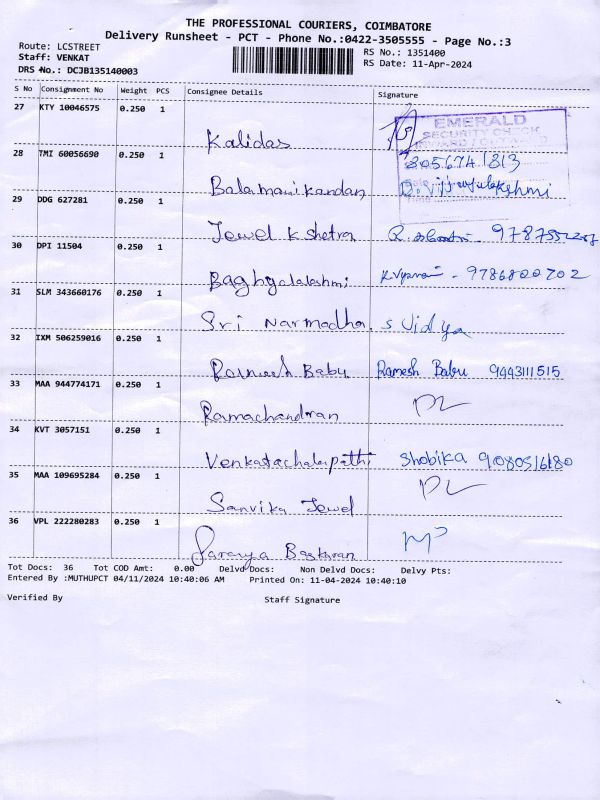 THE PROFESSIONAL COURIERS, COIMBATORE
Delivery Runsheet - PCT - Phone No.:0422-3505555 - Page No.:3
Route: LCSTREET
Staff: VENKAT
DRS No.: DCJB135140003
RS No.: 1351400
RS Date: 11-Apr-2024
S No Consignment No Weight PCS Consignee Details Signature
27 KTY 10046575 0.250 1
Kalidas
EMERALD
SECURITY CHECK
28 TMI 60056690 0.250 1
Balamanikandan
29 DDG 627281 0.250 1
Jewel Kshetra
30 DPI 11504 0.250 1
Baghyalakshmi 9786800702
31 SLM 343660176 0.250 1
Sri Narmadha S Vidya
32 IXM 506259016 0.250 1
Ramesh Babu Ramesh Babu 9443111515
33 MAA 944774171 0.250 1
Ramachandran
34 KVT 3057151 0.250 1
Venkatachalapathi Shobika 9080516180
35 MAA 109695284 0.250 1
Sanvika Jewel
36 VPL 222280283 0.250 1
Saranya Baskaran
Tot Docs: 36 Tot COD Amt: 0.00 Delvd Docs: Non Delvd Docs: Delvy Pts:
Entered By :MUTHUPCT 04/11/2024 10:40:06 AM Printed On: 11-04-2024 10:40:10
Verified By Staff Signature